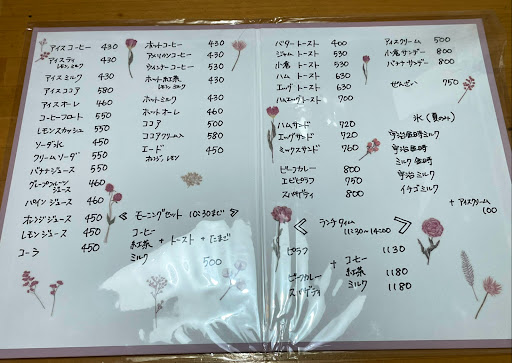 アイスコーヒー 430
アイスティ 430
レモン ミルク
アイスミルク 430
アイスココア 580
アイスオーレ 460
コーヒーフロート 550
レモンスカッシュ 550
ソーダ水 450
クリームソーダ 550
バナナジュース 550
グレープフルーツジュース 460
パインジュース 460
オレンジジュース 450
レモンジュース 450
コーラ 450
ホットコーヒー 430
アメリカンコーヒー 430
ウィンナーコーヒー 530
ホット紅茶 430
レモン ミルク
ホットミルク 430
ホットオーレ 460
ココア 500
ココアクリーム入 580
エード 450
オレンジ、レモン
≪ モーニングセット 10:30まで ≫
コーヒー
紅茶 + トースト + たまご
ミルク 500
バタートースト 400
ジャムトースト 530
小倉トースト 530
ハムトースト 630
エッグトースト 630
ハムエッグトースト 700
ハムサンド 720
エッグサンド 720
ミックスサンド 760
ビーフカレー 850
エビピラフ 750
スパゲティ 850
アイスクリーム 500
小倉サンデー 800
バナナサンデー 800
ぜんざい 750
氷 (夏のみ)
宇治金時ミルク
宇治金時
ミルク金時
宇治ミルク
イチゴミルク
+ アイスクリーム
100
< ランチタイム 11:30~14:00 >
ピラフ 1130
ビーフカレー 1180
スパゲティ 1180
+ コーヒー
紅茶
ミルク